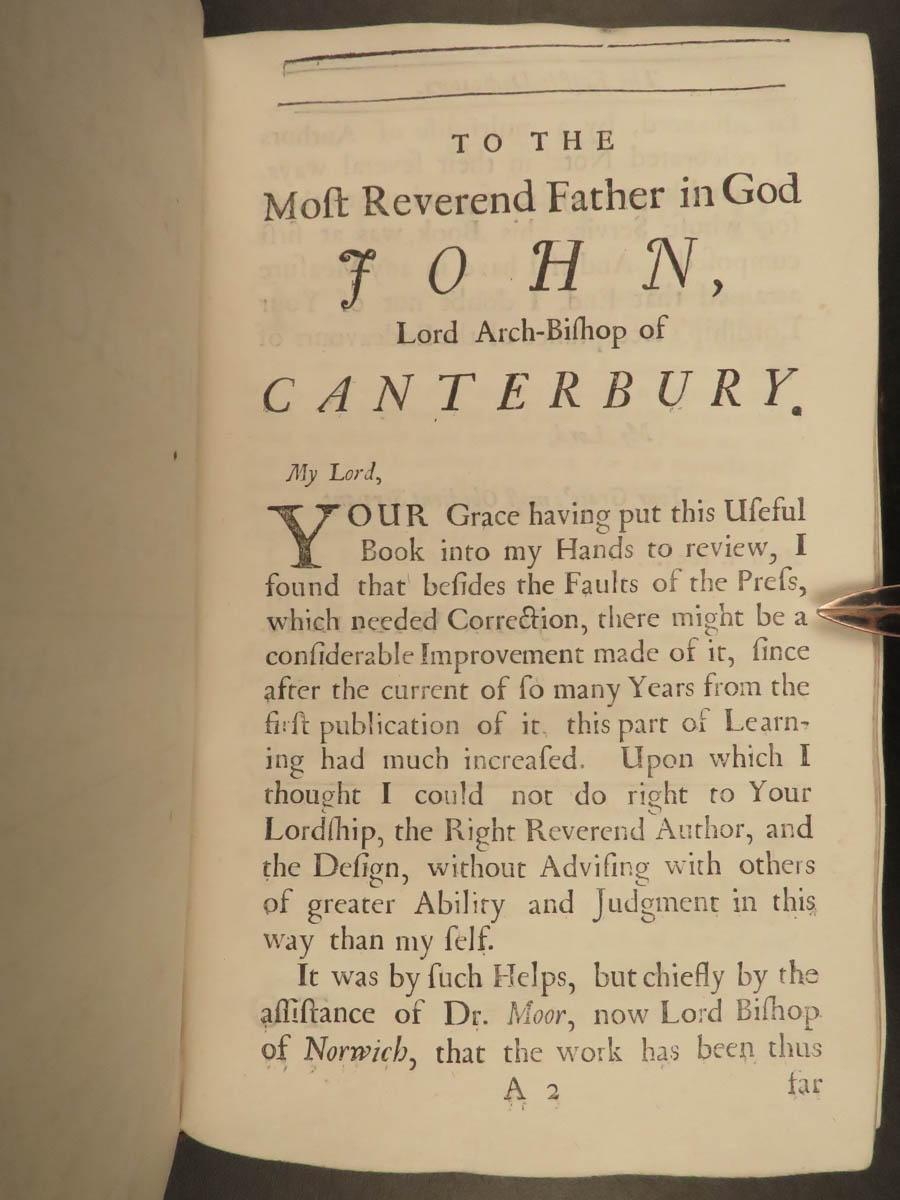 TO THE
Moſt Reverend Father in God
JOHN,
Lord Arch-Biſhop of
CANTERBURY.
My Lord,
YOUR Grace having put this Uſeful
Book into my Hands to review, I
found that beſides the Faults of the Preſs,
which needed Correction, there might be a
conſiderable Improvement made of it, ſince
after the current of ſo many Years from the
firſt publication of it, this part of Learn-
ing had much increaſed. Upon which I
thought I could not do right to Your
Lordſhip, the Right Reverend Author, and
the Deſign, without Adviſing with others
of greater Ability and Judgment in this
way than my ſelf.
It was by ſuch Helps, but chiefly by the
aſſiſtance of Dr. Moor, now Lord Biſhop
of Norwich, that the work has been thus
A 2 far